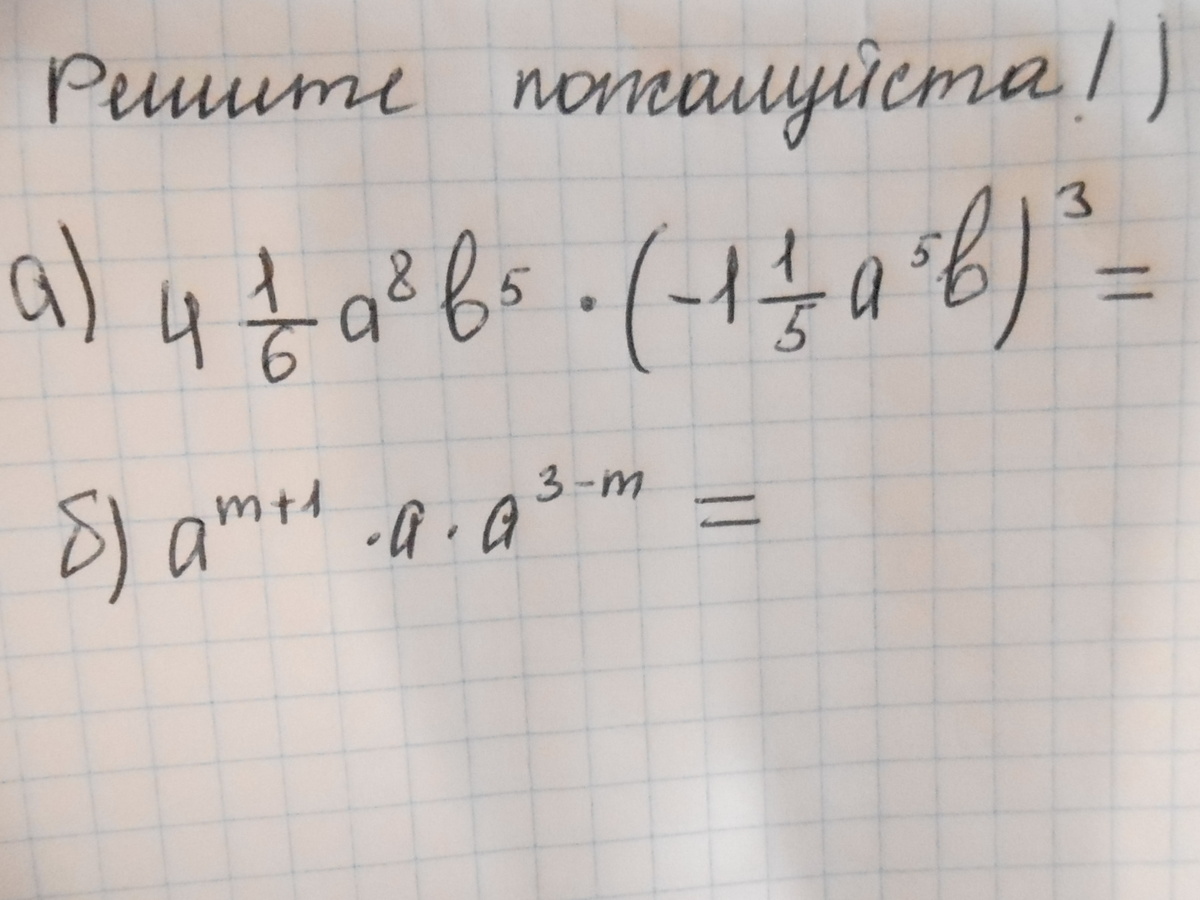 Решите пожалуйста! )
а) 4 1/6 a⁸ b⁵ · (-1 1/5 a⁵b)³ =
б) a^(m+1) · a · a^(3-m) =